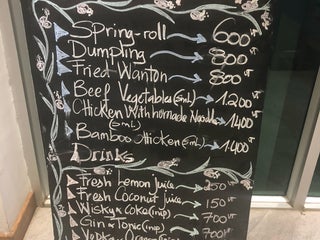 Spring-roll → 600 VT
Dumpling → 800 VT
Fried Wanton → 800 VT
Beef Vegetables (5ml) → 1.200 VT
Chicken With homade Noodle
(5ml) → 1400 VT
Bamboo Chicken (5ml) → 1.400 VT
Drinks
Fresh Lemon juice → 250 VT
Fresh Coconut juice → 150 VT
Wisky & Coka (1nip) → 700 VT
Gin & Tonic (1nip) → 700 VT